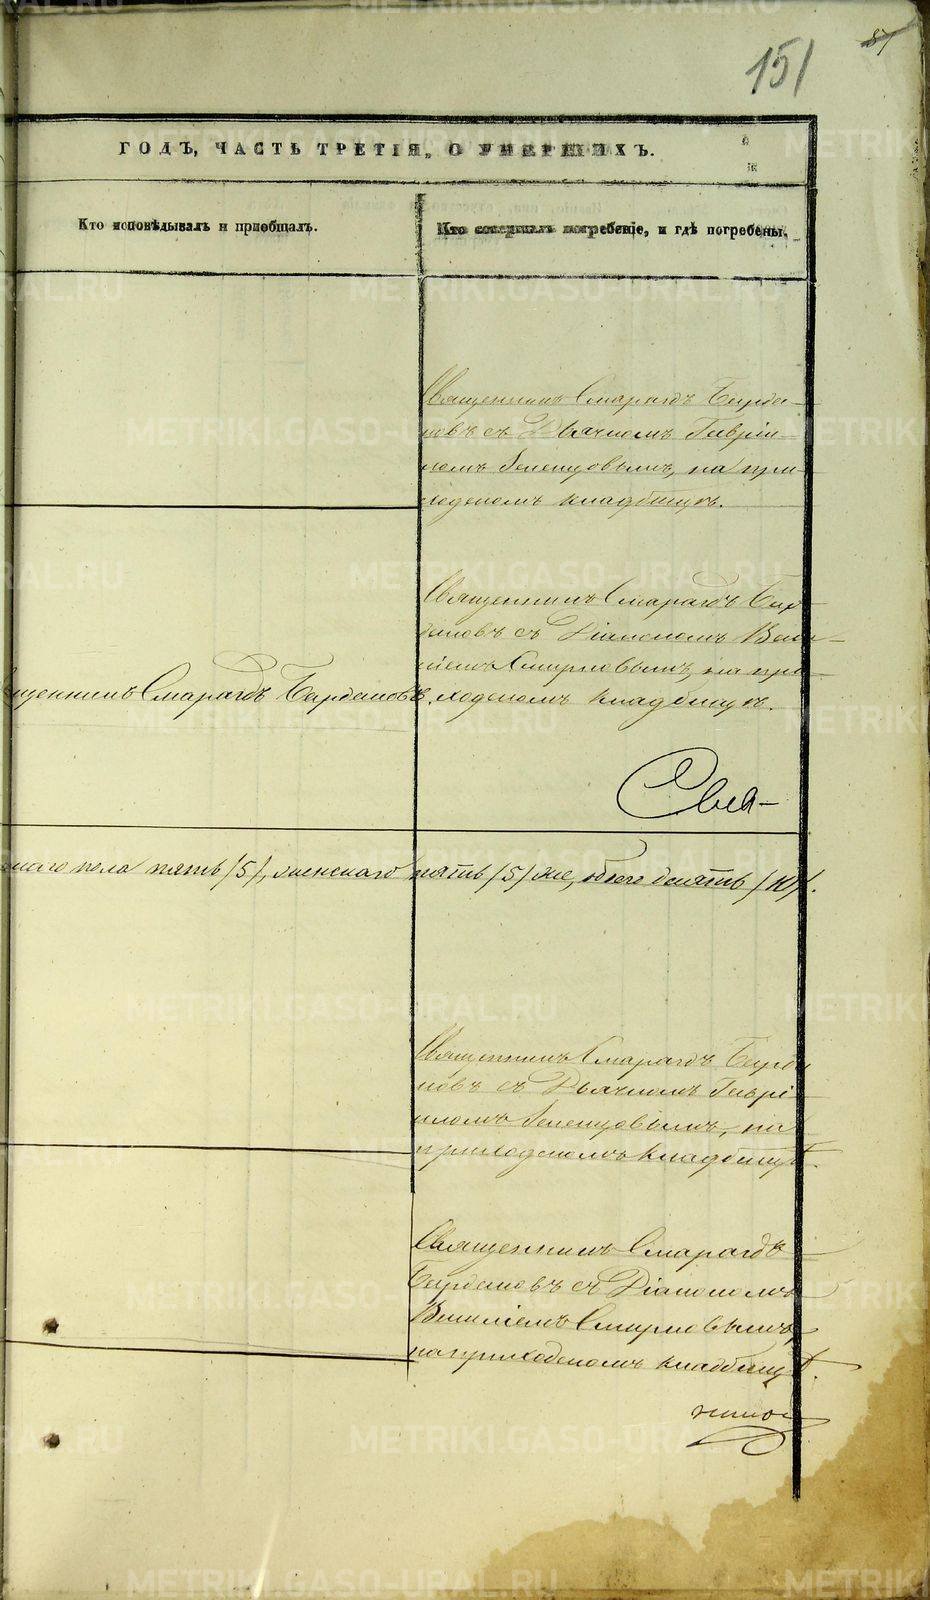 151
87
ГОДЪ, ЧАСТЬ ТРЕТІЯ, О УМЕРШИХЪ.
Кто исповѣдывалъ и пріобщалъ.
Кто совершалъ погребеніе, и гдѣ погребены.
Священникъ Смарагдъ Бирда-
новъ съ Дьячкомъ Гавріи-
ломъ Зеленцовымъ, на при-
ходскомъ кладбищѣ.
Священникъ Смарагдъ Бир-
дановъ съ Діакономъ Васи-
ліемъ Смирновымъ, на при-
ходскомъ кладбищѣ.
щенникъ Смарагдъ Бирдановъ.
Свя-
скаго пола пять /5/, женскаго пять /5/ же, обоего десять /10/.
Священникъ Смарагдъ Бирда
новъ съ Дьячкомъ Гаврі-
иломъ Зеленцовымъ, на
приходскомъ кладбищѣ.
Священникъ Смарагдъ
Бирдановъ съ Діакономъ
Василіемъ Смирновымъ,
на приходскомъ кладбищѣ.
METRIKI.GASO-URAL.RU